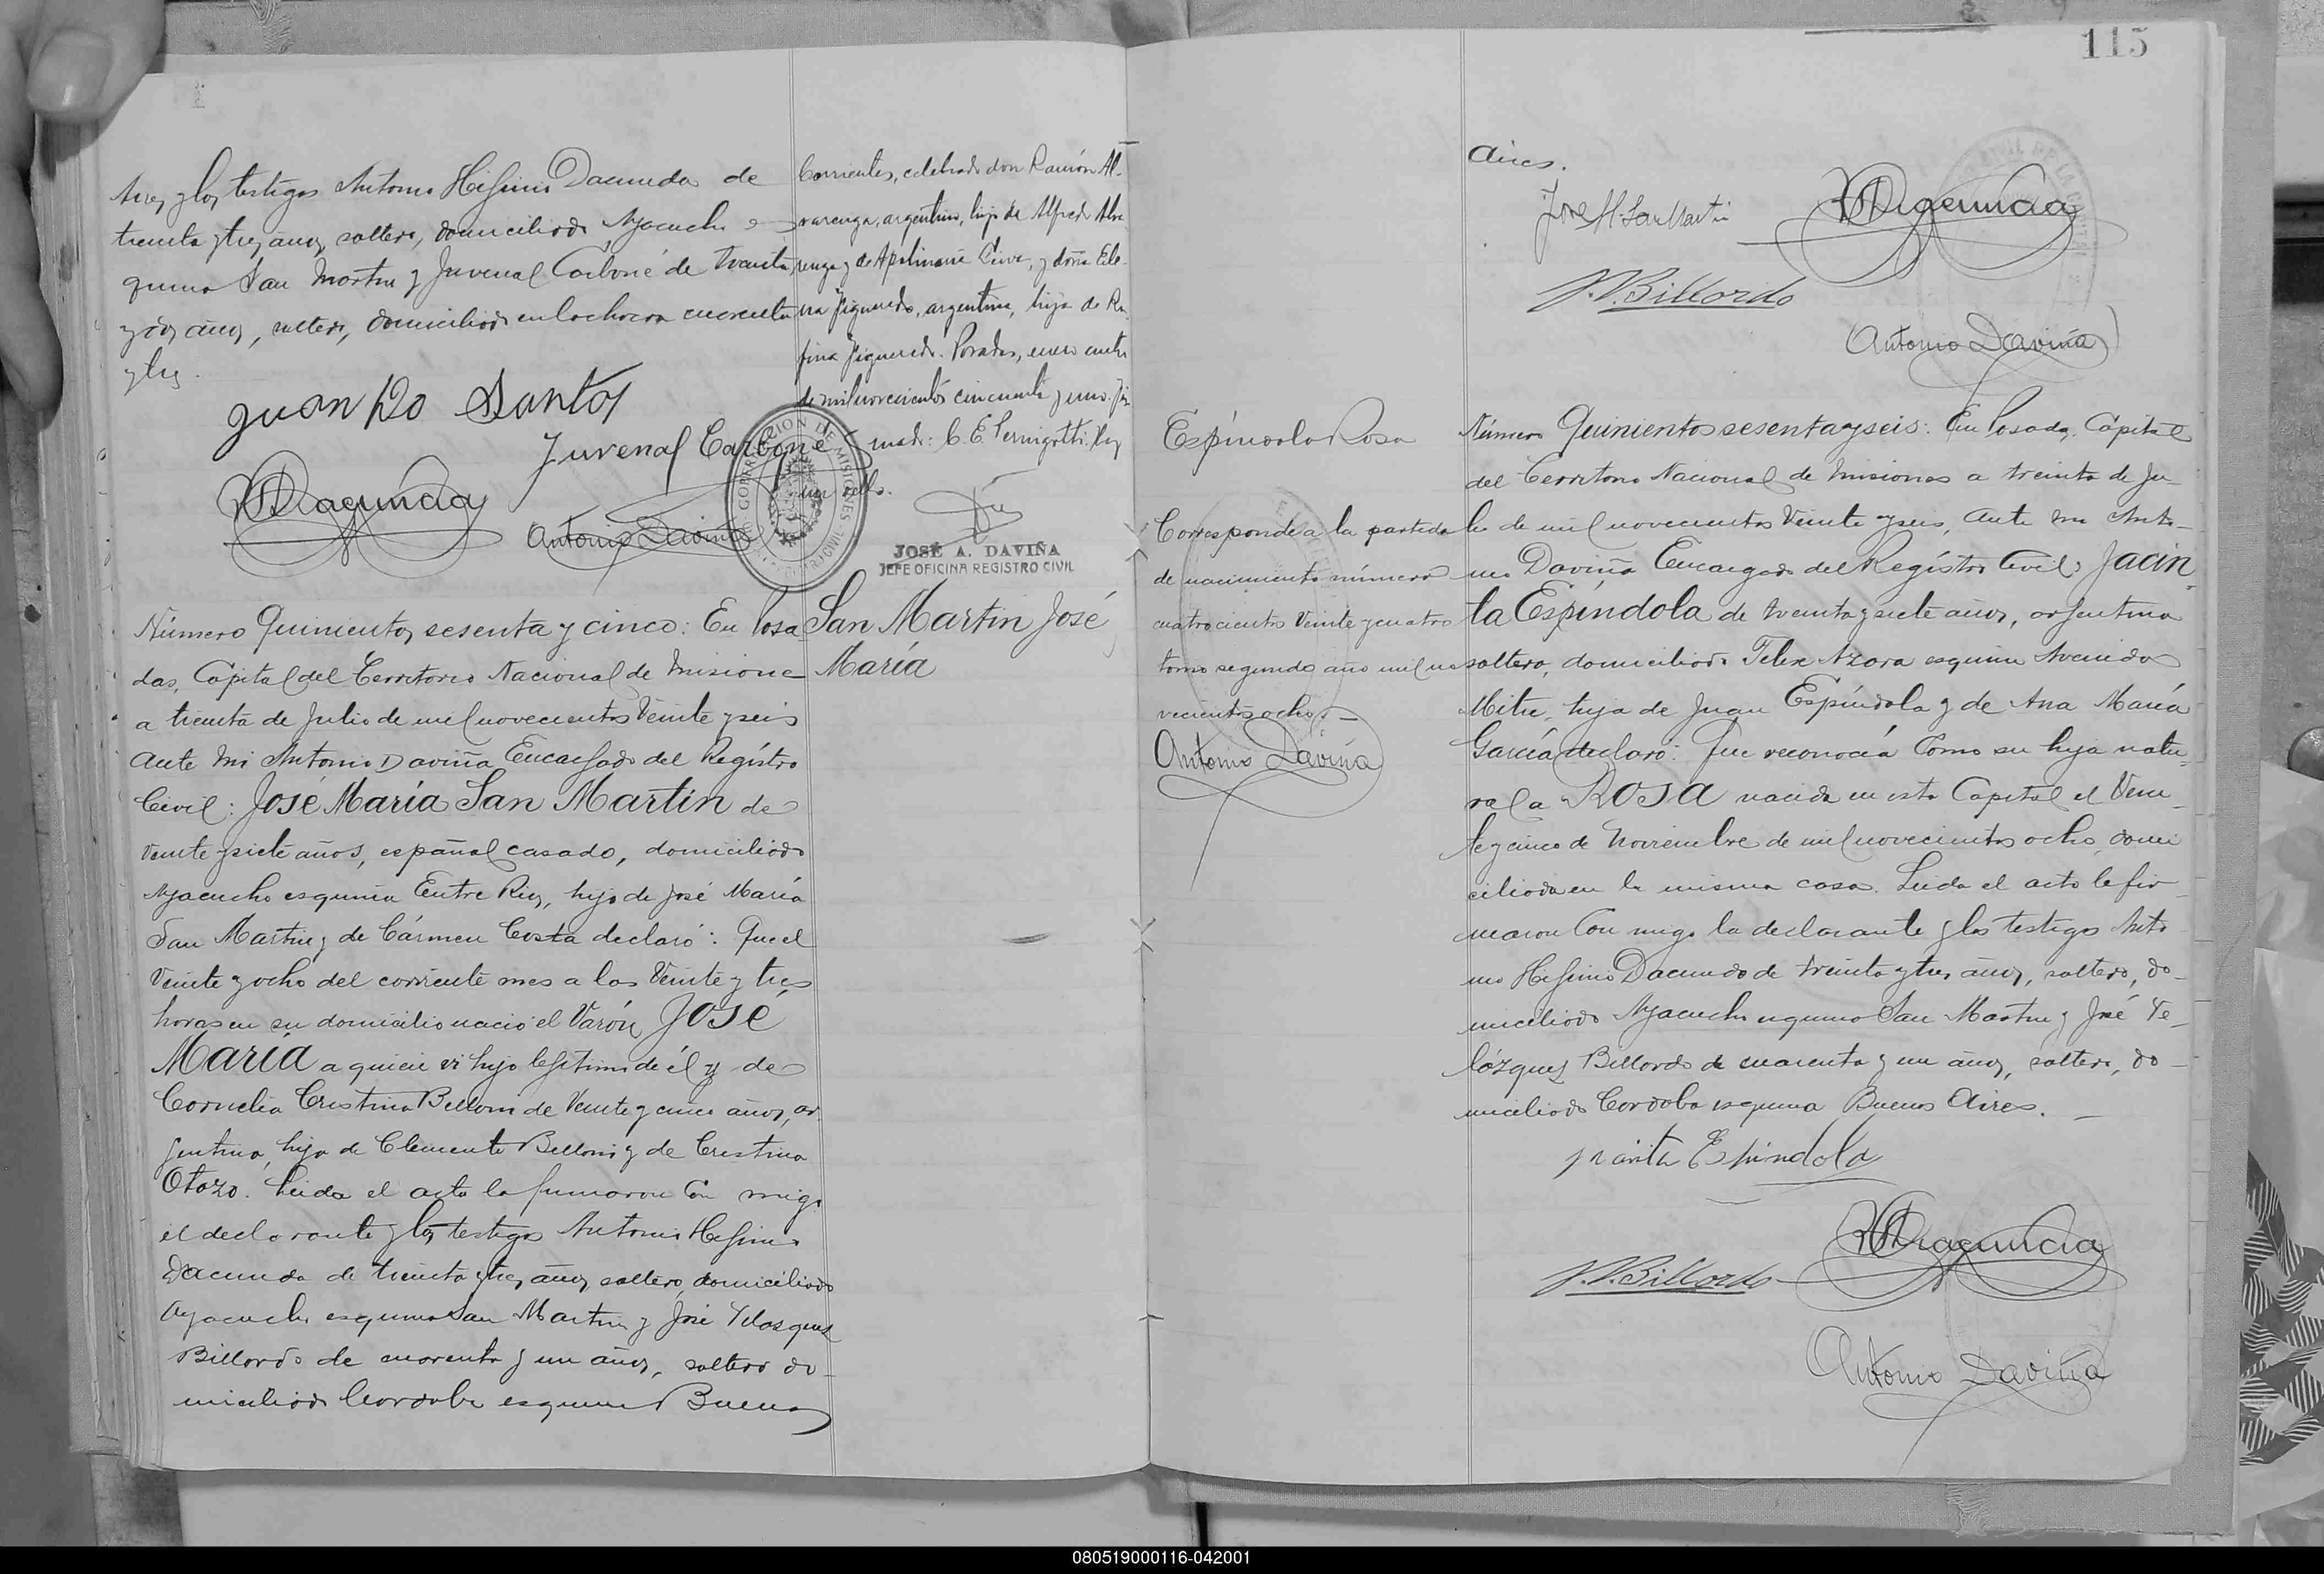 y los testigos Antonio Higinio Dacunda de
treinta y tres años, soltero, domiciliado Ayacucho es
quina San Martin y Juvenal Carboné de treinta
y dos años, soltero, domiciliado en la chacra cuarenta
y tres.
Juan Do Santos
Juvenal Carboné
Antonio Daviña
Corrientes, celebrado don Ramón Al-
varenga, argentino, hijo de Alfredo Alva
renga y de Apolinaria y doña Ele-
na Figueredo, argentina, hija de Ru
fina Figueredo. Posadas, enero
de mil novecientos cincuenta y uno. Fir
mado: C. E. Hay
un sello.
GOBERNACION DE MISIONES
REGISTRO CIVIL
JOSÉ A. DAVIÑA
JEFE OFICINA REGISTRO CIVIL
San Martin José
María
Número Quinientos sesenta y cinco: En Posa
das, Capital del Territorio Nacional de Misiones
a treinta de Julio de mil novecientos Veinte y seis
Ante mi Antonio Daviña Encargado del Regístro
Civil: José María San Martin de
Veinte y siete años, español casado, domiciliado
Ayacucho esquina Entre Rios, hijo de José María
San Martin y de Cármen Costa declaró: Que el
Veinte y ocho del corriente mes a las Veinte y tres
horas en su domicilio nació el Varón, José
María a quien vi hijo legítimo de él y de
Cornelia Cristina Belloni de Veinte y cinco años, ar
gentina, hija de Clemente Belloni y de Cristina
Otazo. Leida el acta la firmaron Con migo
el declarante y los testigos Antonio Higinio
Dacunda de treinta y tres años, soltero, domiciliado
Ayacucho esquina San Martin y José Velazquez
Billordo de cuarenta y un años, soltero do-
miciliado Cordoba esquina Buenos
115
Aires.
José M. San Martin
J.V. Billordo
Antonio Daviña
Espíndola Rosa
Corresponde a la partida
de nacimiento número
cuatrocientos Veinte y cuatro
tomo segundo año mil no
vecientos ocho. -
Antonio Daviña
Número Quinientos sesenta y seis: En Posadas, Capital
del Territorio Nacional de Misiones a treinta de Ju-
lio de mil novecientos Veinte y seis, Ante mi Anto-
nio Daviña Encargado del Regístro Civil: Jacin-
ta Espíndola de treinta y siete años, argentina
soltera, domiciliada Felix Azara esquina Avenida
Mitre, hija de Juan Espíndola y de Ana María
García declaró: Que reconocía Como su hija natu-
ral a Rosa nacida en esta Capital el Vein-
te y cinco de Noviembre de mil novecientos ocho, domi
ciliada en la misma casa. Leida el acta la fir-
maron Con migo la declarante y los testigos Anto
nio Higinio Dacunda de treinta y tres años, soltero, do-
miciliado Ayacucho esquina San Martin y José Ve-
lázquez Billordo de cuarenta y un años, soltero, do-
miciliado Cordoba esquina Buenos Aires. -
Espindola
J.V. Billordo
Antonio Daviña
080519000116-042001